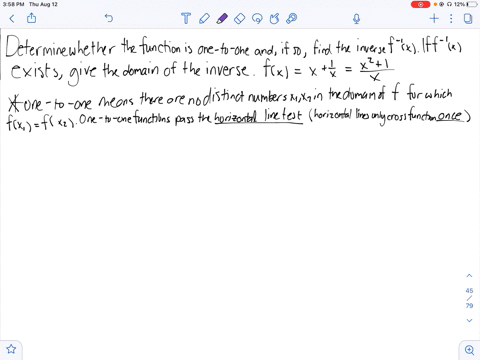 3:58 PM Thu Aug 12
12%
Determine whether the function is one-to-one and, if so, find the inverse f⁻¹(x). If f⁻¹(x)
exists, give the domain of the inverse. f(x) = x + 1/x = (x²+1)/x
* one-to-one means there are no distinct numbers x₁,x₂ in the domain of f for which
f(x₁)=f(x₂). One-to-one functions pass the horizontal line test (horizontal lines only cross function once)
45
/
79